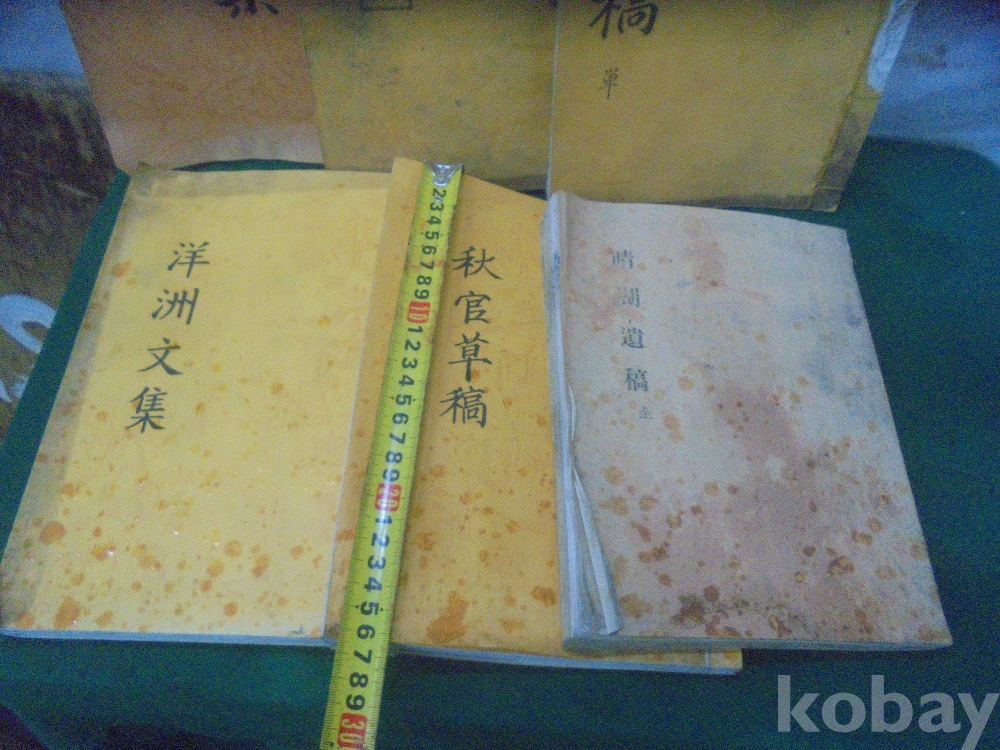 集
稿
單
洋洲文集
秋官草稿
晴湖遺稿 全
2 3 4 5 6 7 8 9 10 1 2 3 4 5 6 7 8 9 20 1 2 3 4 5 6 7 8 9 30
kobay